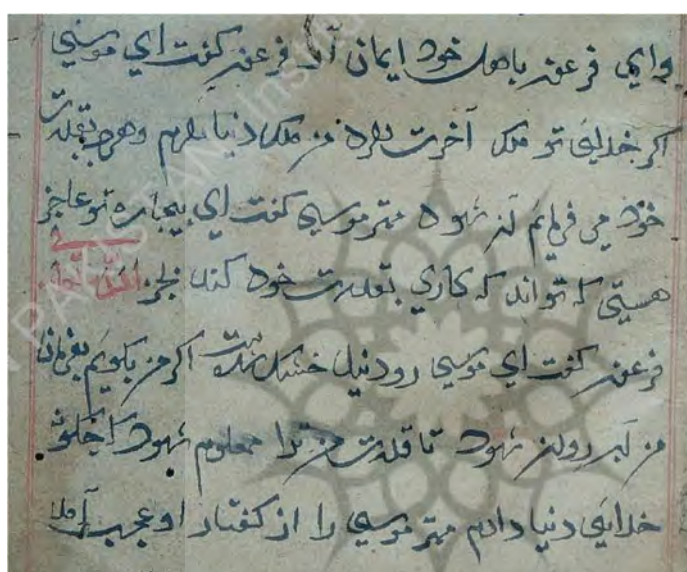 وای فرعون باهول خود ایمان آر فرعون گفت ای موسی
اکر خدایی تو ملک آخرت دارد من ملک دنیا دارم وهرچه بقدرت
خود می فرمایم آن شود مهتر موسی گفت ای بیچاره تو عاجز
هستی که تواند که کاری بقدرت خود کند بجز
فرعون گفت ای موسی رود نیل خشک شده است اکر من بگویم بفرمان
من آب روان شود تا قدرت من ترا معلوم شود که چکونه
خدایی دنیا دارم مهتر موسی را از گفتار او عجب آمد